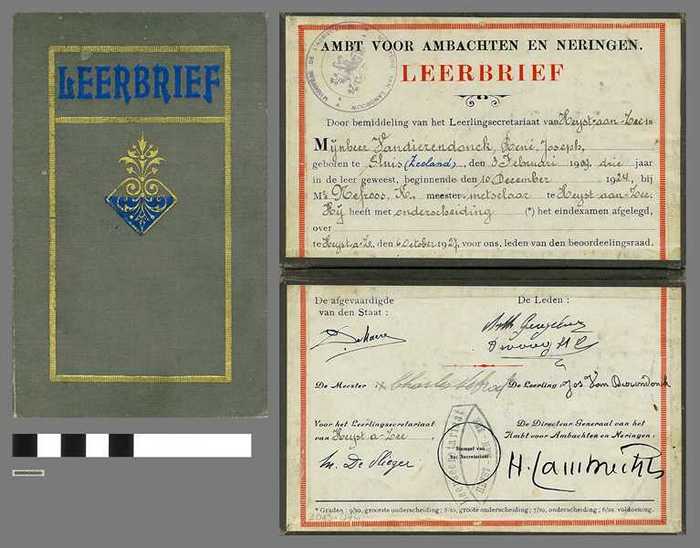 LEERBRIEF
AMBT VOOR AMBACHTEN EN NERINGEN.
LEERBRIEF
Door bemiddeling van het Leerlingsecretariaat van Heyst-aan-Zee is
Mijnheer Vandierendonck, René Joseph,
geboren te Sluis (Zeeland), den 3 Februari 1909, drie jaar
in de leer geweest, beginnende den 10 December 1924, bij
Mr Nefroos, K. meester-metselaar te Heyst-aan-Zee.
Hij heeft met onderscheiding (*) het eindexamen afgelegd,
over
te Heyst-a-Z., den 6 October 1927, voor ons, leden van den beoordeelingsraad.
De afgevaardigde
van den Staat :
De Leden :
De Meester
De Leerling Jos Van Dierendonck
Voor het Leerlingsecretariaat
van Heyst a Zee
De Directeur Generaal van het
Ambt voor Ambachten en Neringen.
Stempel van
het Secretariaat
M. De Vlieger
H. Lambrechts
* Graden : 9/10, grootste onderscheiding; 8/10, groote onderscheiding; 7/10, onderscheiding; 6/10, voldoening.